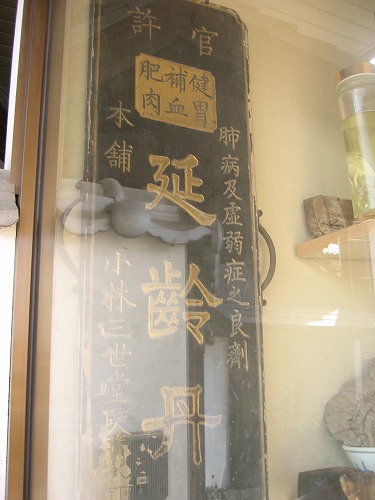 官許
健胃
補血
肥肉
肺病及虚弱症之良劑
延齡丹
本舗
小林三世堂